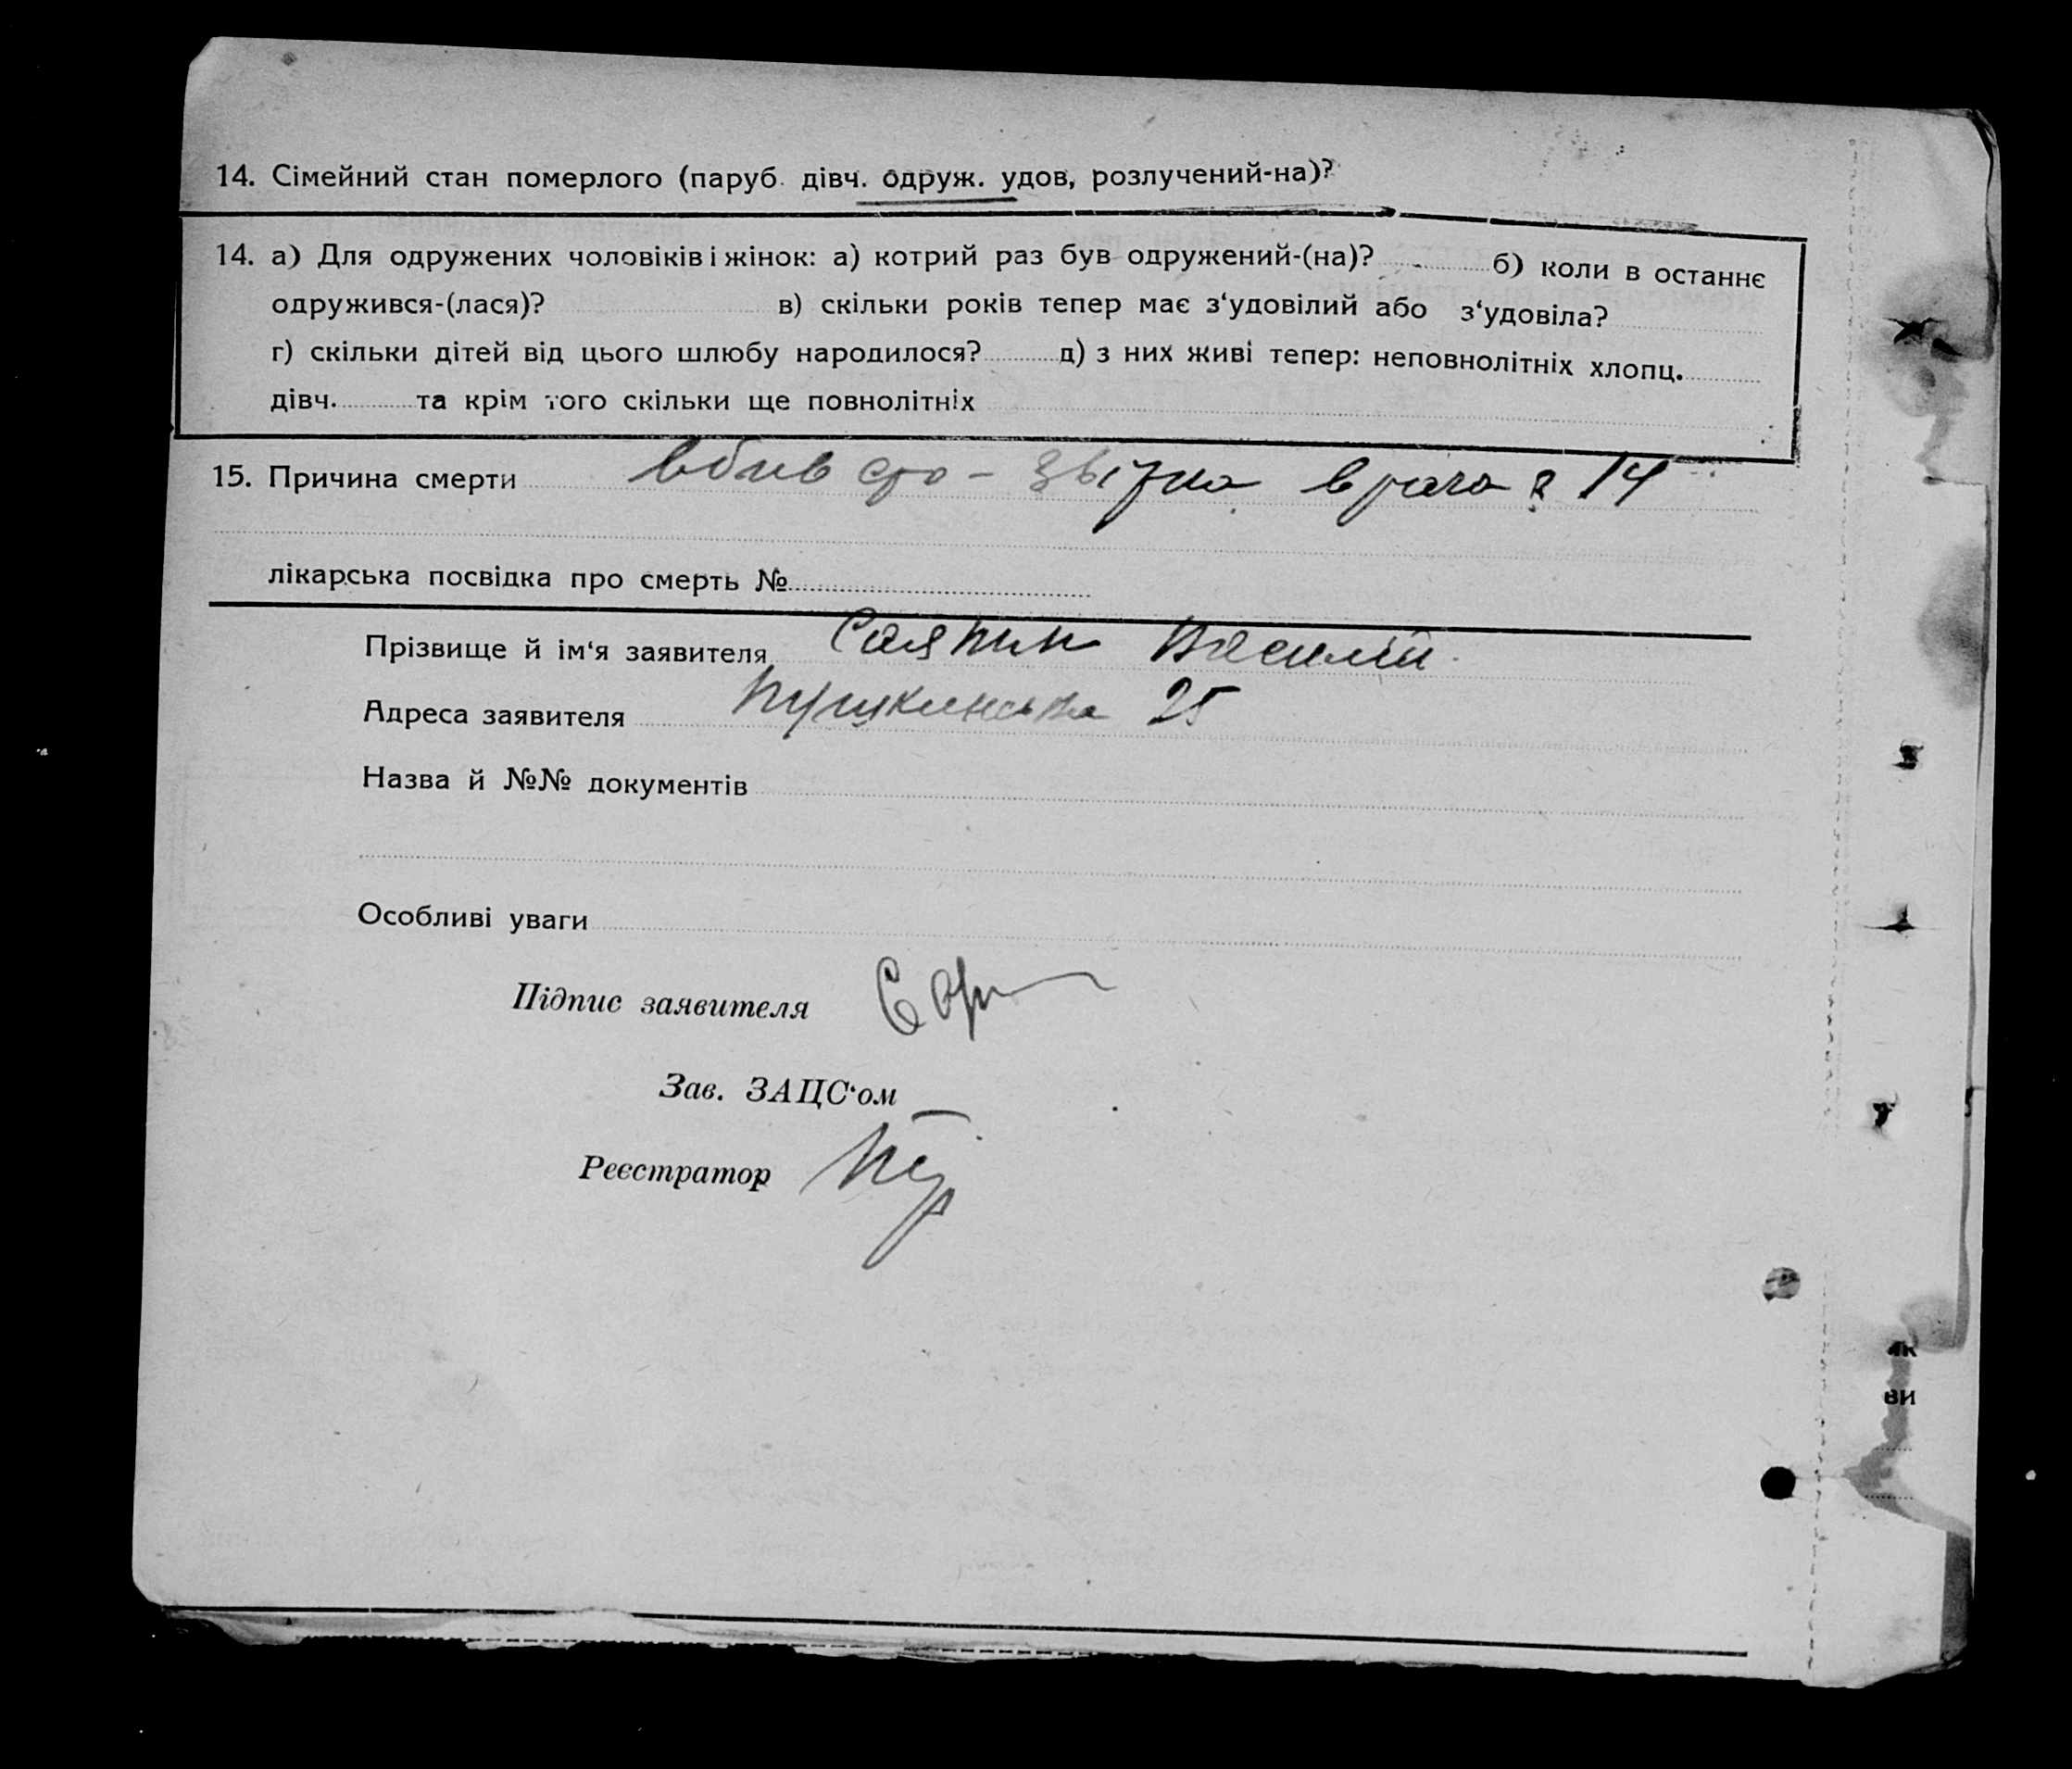 14. Сімейний стан померлого (паруб. дівч. одруж. удов, розлучений-на)?
14. а) Для одружених чоловіків і жінок: а) котрий раз був одружений-(на)? б) коли в останнє
одружився-(лася)? в) скільки років тепер має з‘удовілий або з‘удовіла?
г) скільки дітей від цього шлюбу народилося? д) з них живі тепер: неповнолітніх хлопц.
дівч. та крім того скільки ще повнолітніх
15. Причина смерти вбивство - 14
лікарська посвідка про смерть №
Прізвище й ім‘я заявителя Саяпин Василій
Адреса заявителя Пушкинська 25
Назва й №№ документів
Особливі уваги
Підпис заявителя
Зав. ЗАЦС‘ом
Реєстратор
як
ви